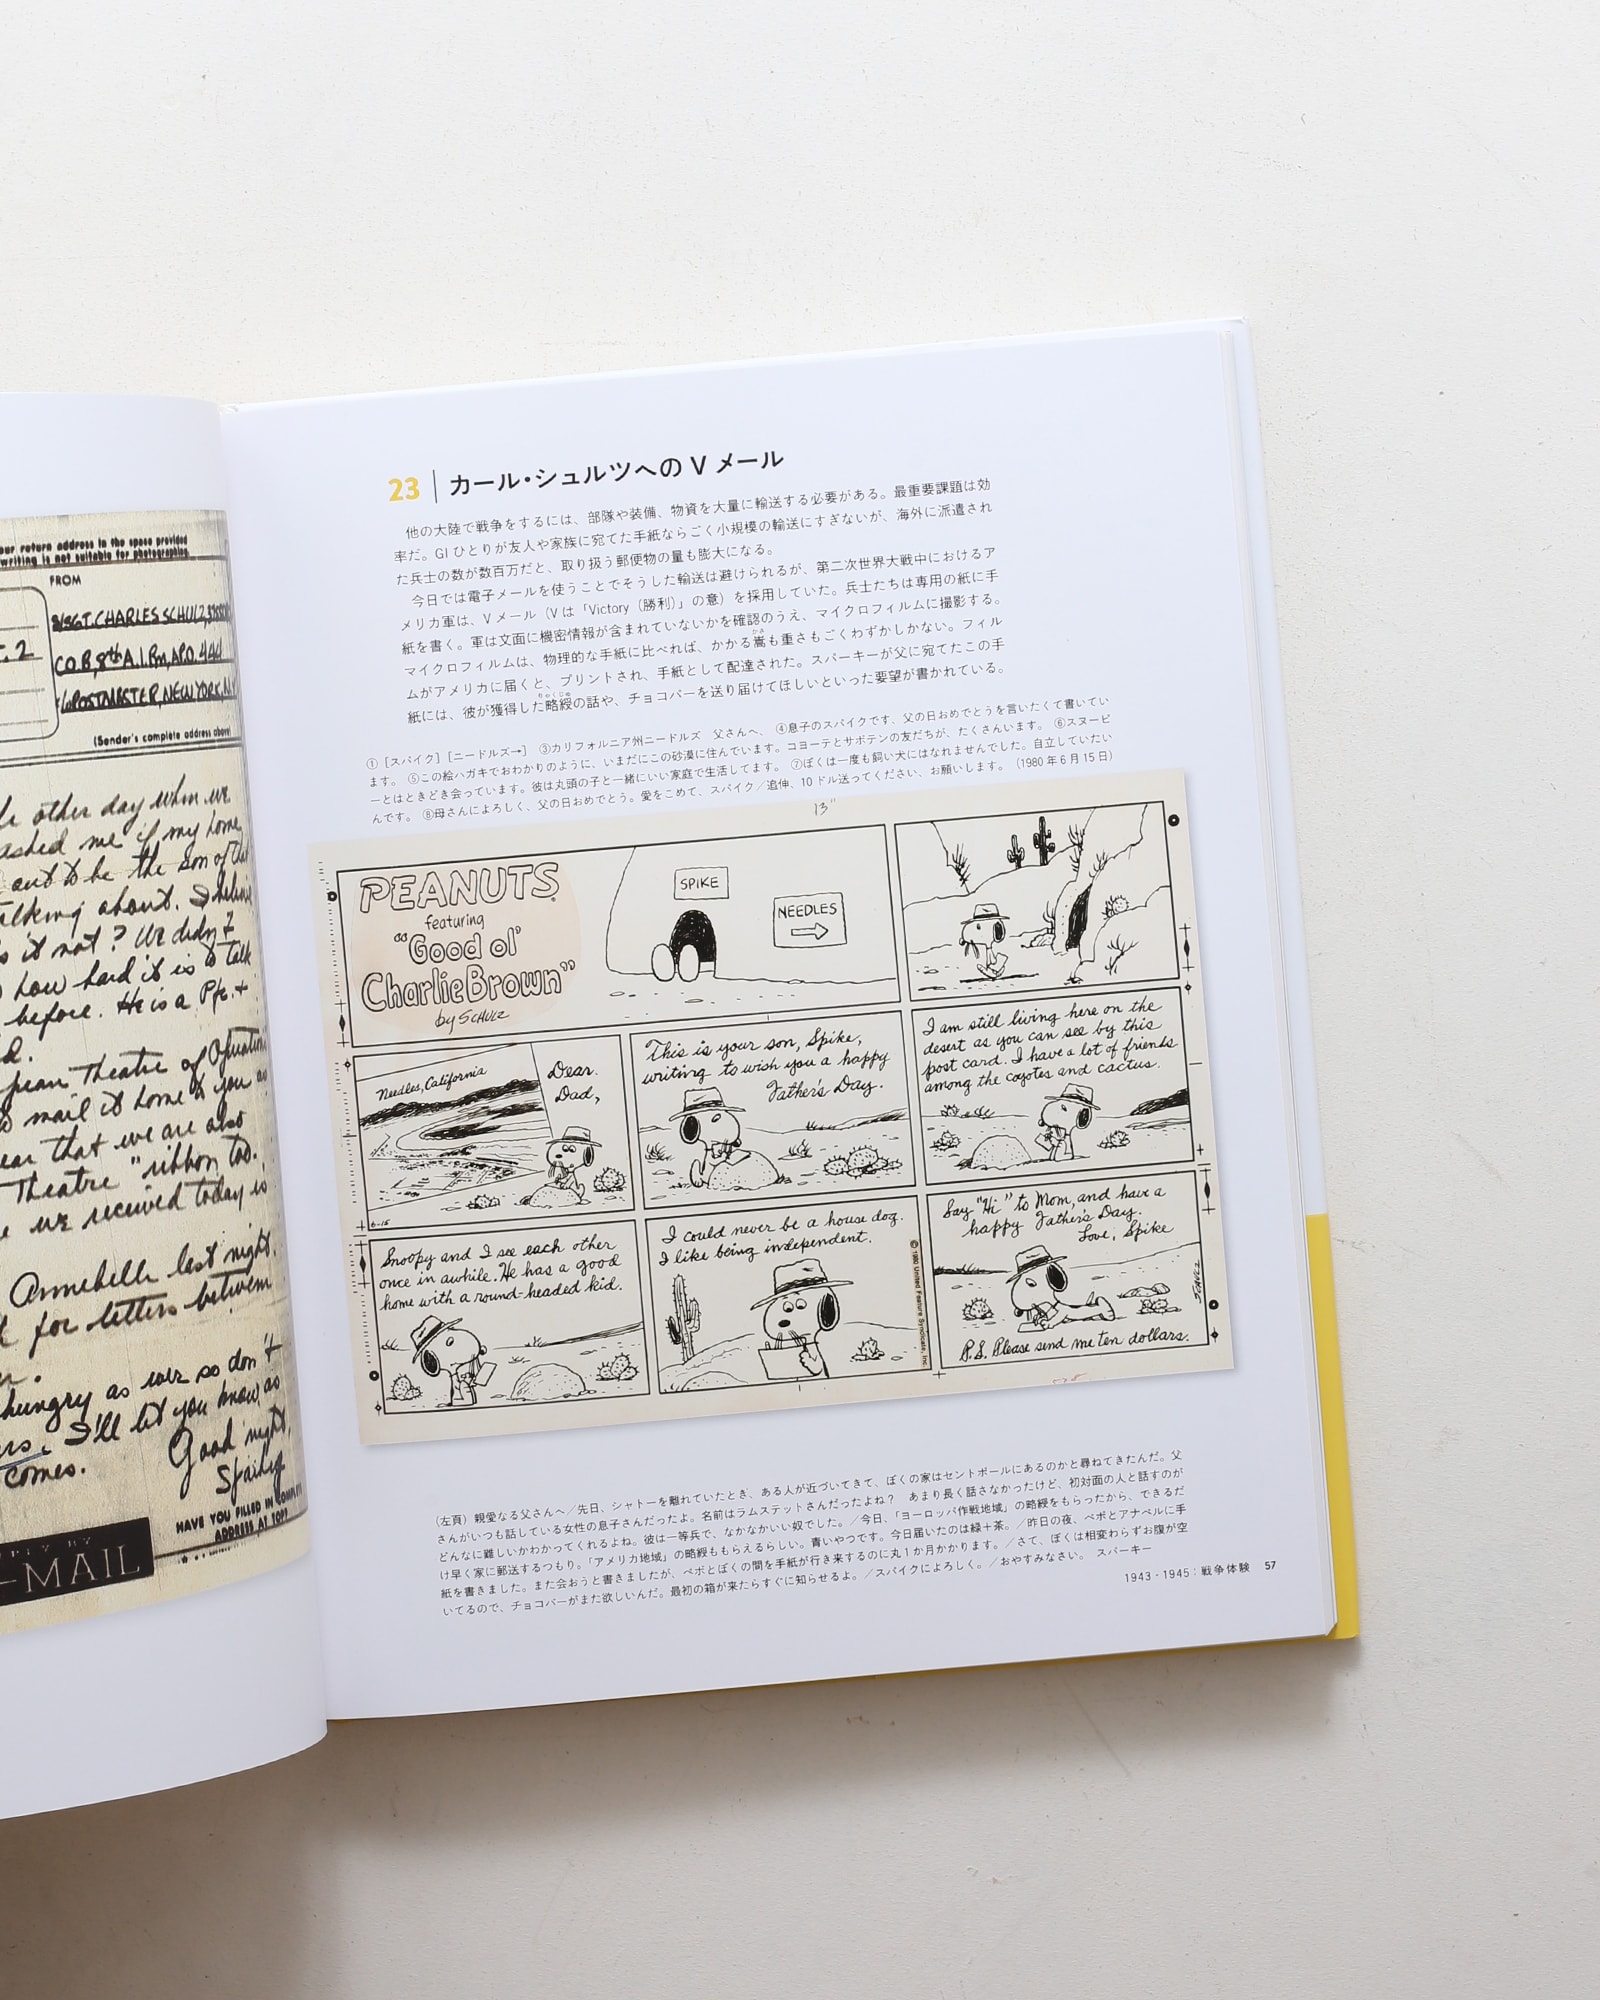 our return address in the space provided
writing is not suitable for photographing.
FROM
S/SGT. CHARLES SCHULZ,
CO. B, 8th A. I. Bn, A.P.O. 444
% POSTMASTER, NEW YORK, N.Y.
(Sender's complete address above)
other day when we
asked me if my home
out to be the son of that
talking about. I believe
is it not? We didn't
how hard it is to talk
before. He is a Pfc. +
d.
pean Theatre of Operations
to mail it home to you as
ear that we are also
Theatre" ribbon too.
we received today is
Annabelle last night.
for letters between
hungry as ever so don't
ers. I'll let you know as
comes.
Good night,
Sparky
HAVE YOU FILLED IN COMPLETE
ADDRESS AT TOP?
-MAIL
23 | カール・シュルツへのVメール
他の大陸で戦争をするには、部隊や装備、物資を大量に輸送する必要がある。最重要課題は効
率だ。GIひとりが友人や家族に宛てた手紙ならごく小規模の輸送にすぎないが、海外に派遣され
た兵士の数が数百万だと、取り扱う郵便物の量も膨大になる。
今日では電子メールを使うことでそうした輸送は避けられるが、第二次世界大戦中におけるア
メリカ軍は、Vメール（Vは「Victory（勝利）」の意）を採用していた。兵士たちは専用の紙に手
紙を書く。軍は文面に機密情報が含まれていないかを確認のうえ、マイクロフィルムに撮影する。
マイクロフィルムは、物理的な手紙に比べれば、かかる嵩も重さもごくわずかしかない。フィル
ムがアメリカに届くと、プリントされ、手紙として配達された。スパーキーが父に宛てたこの手
紙には、彼が獲得した略綬の話や、チョコバーを送り届けてほしいといった要望が書かれている。
①［スパイク］［ニードルズ→］ ③カリフォルニア州ニードルズ　父さんへ、 ④息子のスパイクです、父の日おめでとうを言いたくて書いてい
ます。 ⑤この絵ハガキでおわかりのように、いまだにこの砂漠に住んでいます。コヨーテとサボテンの友だちが、たくさんいます。 ⑥スヌーピ
ーとはときどき会っています。彼は丸頭の子と一緒にいい家庭で生活してます。 ⑦ぼくは一度も飼い犬にはなれませんでした。自立していたい
んです。 ⑧母さんによろしく、父の日おめでとう。愛をこめて、スパイク／追伸、10ドル送ってください、お願いします。（1980年6月15日）
13"
PEANUTS
featuring
"Good ol'
Charlie Brown"
by SCHULZ
SPIKE
NEEDLES
Needles, California
Dear
Dad,
6-15
This is your son, Spike,
writing to wish you a happy
Father's Day.
I am still living here on the
desert as you can see by this
post card. I have a lot of friends
among the coyotes and cactus.
Snoopy and I see each other
once in awhile. He has a good
home with a round-headed kid.
I could never be a house dog.
I like being independent.
© 1980 United Feature Syndicate, Inc.
Say "Hi" to Mom, and have a
happy Father's Day.
Love, Spike
SCHULZ
P.S. Please send me ten dollars.
（左頁）親愛なる父さんへ／先日、シャトーを離れていたとき、ある人が近づいてきて、ぼくの家はセントポールにあるのかと尋ねてきたんだ。父
さんがいつも話している女性の息子さんだったよ。名前はラムステットさんだったよね？　あまり長く話さなかったけど、初対面の人と話すのが
どんなに難しいかわかってくれるよね。彼は一等兵で、なかなかいい奴でした。／今日、「ヨーロッパ作戦地域」の略綬をもらったから、できるだ
け早く家に郵送するつもり。「アメリカ地域」の略綬ももらえるらしい。青いやつです。今日届いたのは緑＋茶。／昨日の夜、ペポとアナベルに手
紙を書きました。また会おうと書きましたが、ペポとぼくの間を手紙が行き来するのに丸1か月かかります。／さて、ぼくは相変わらずお腹が空
いてるので、チョコバーがまた欲しいんだ。最初の箱が来たらすぐに知らせるよ。／スパイクによろしく。／おやすみなさい。 スパーキー
1943-1945：戦争体験 57